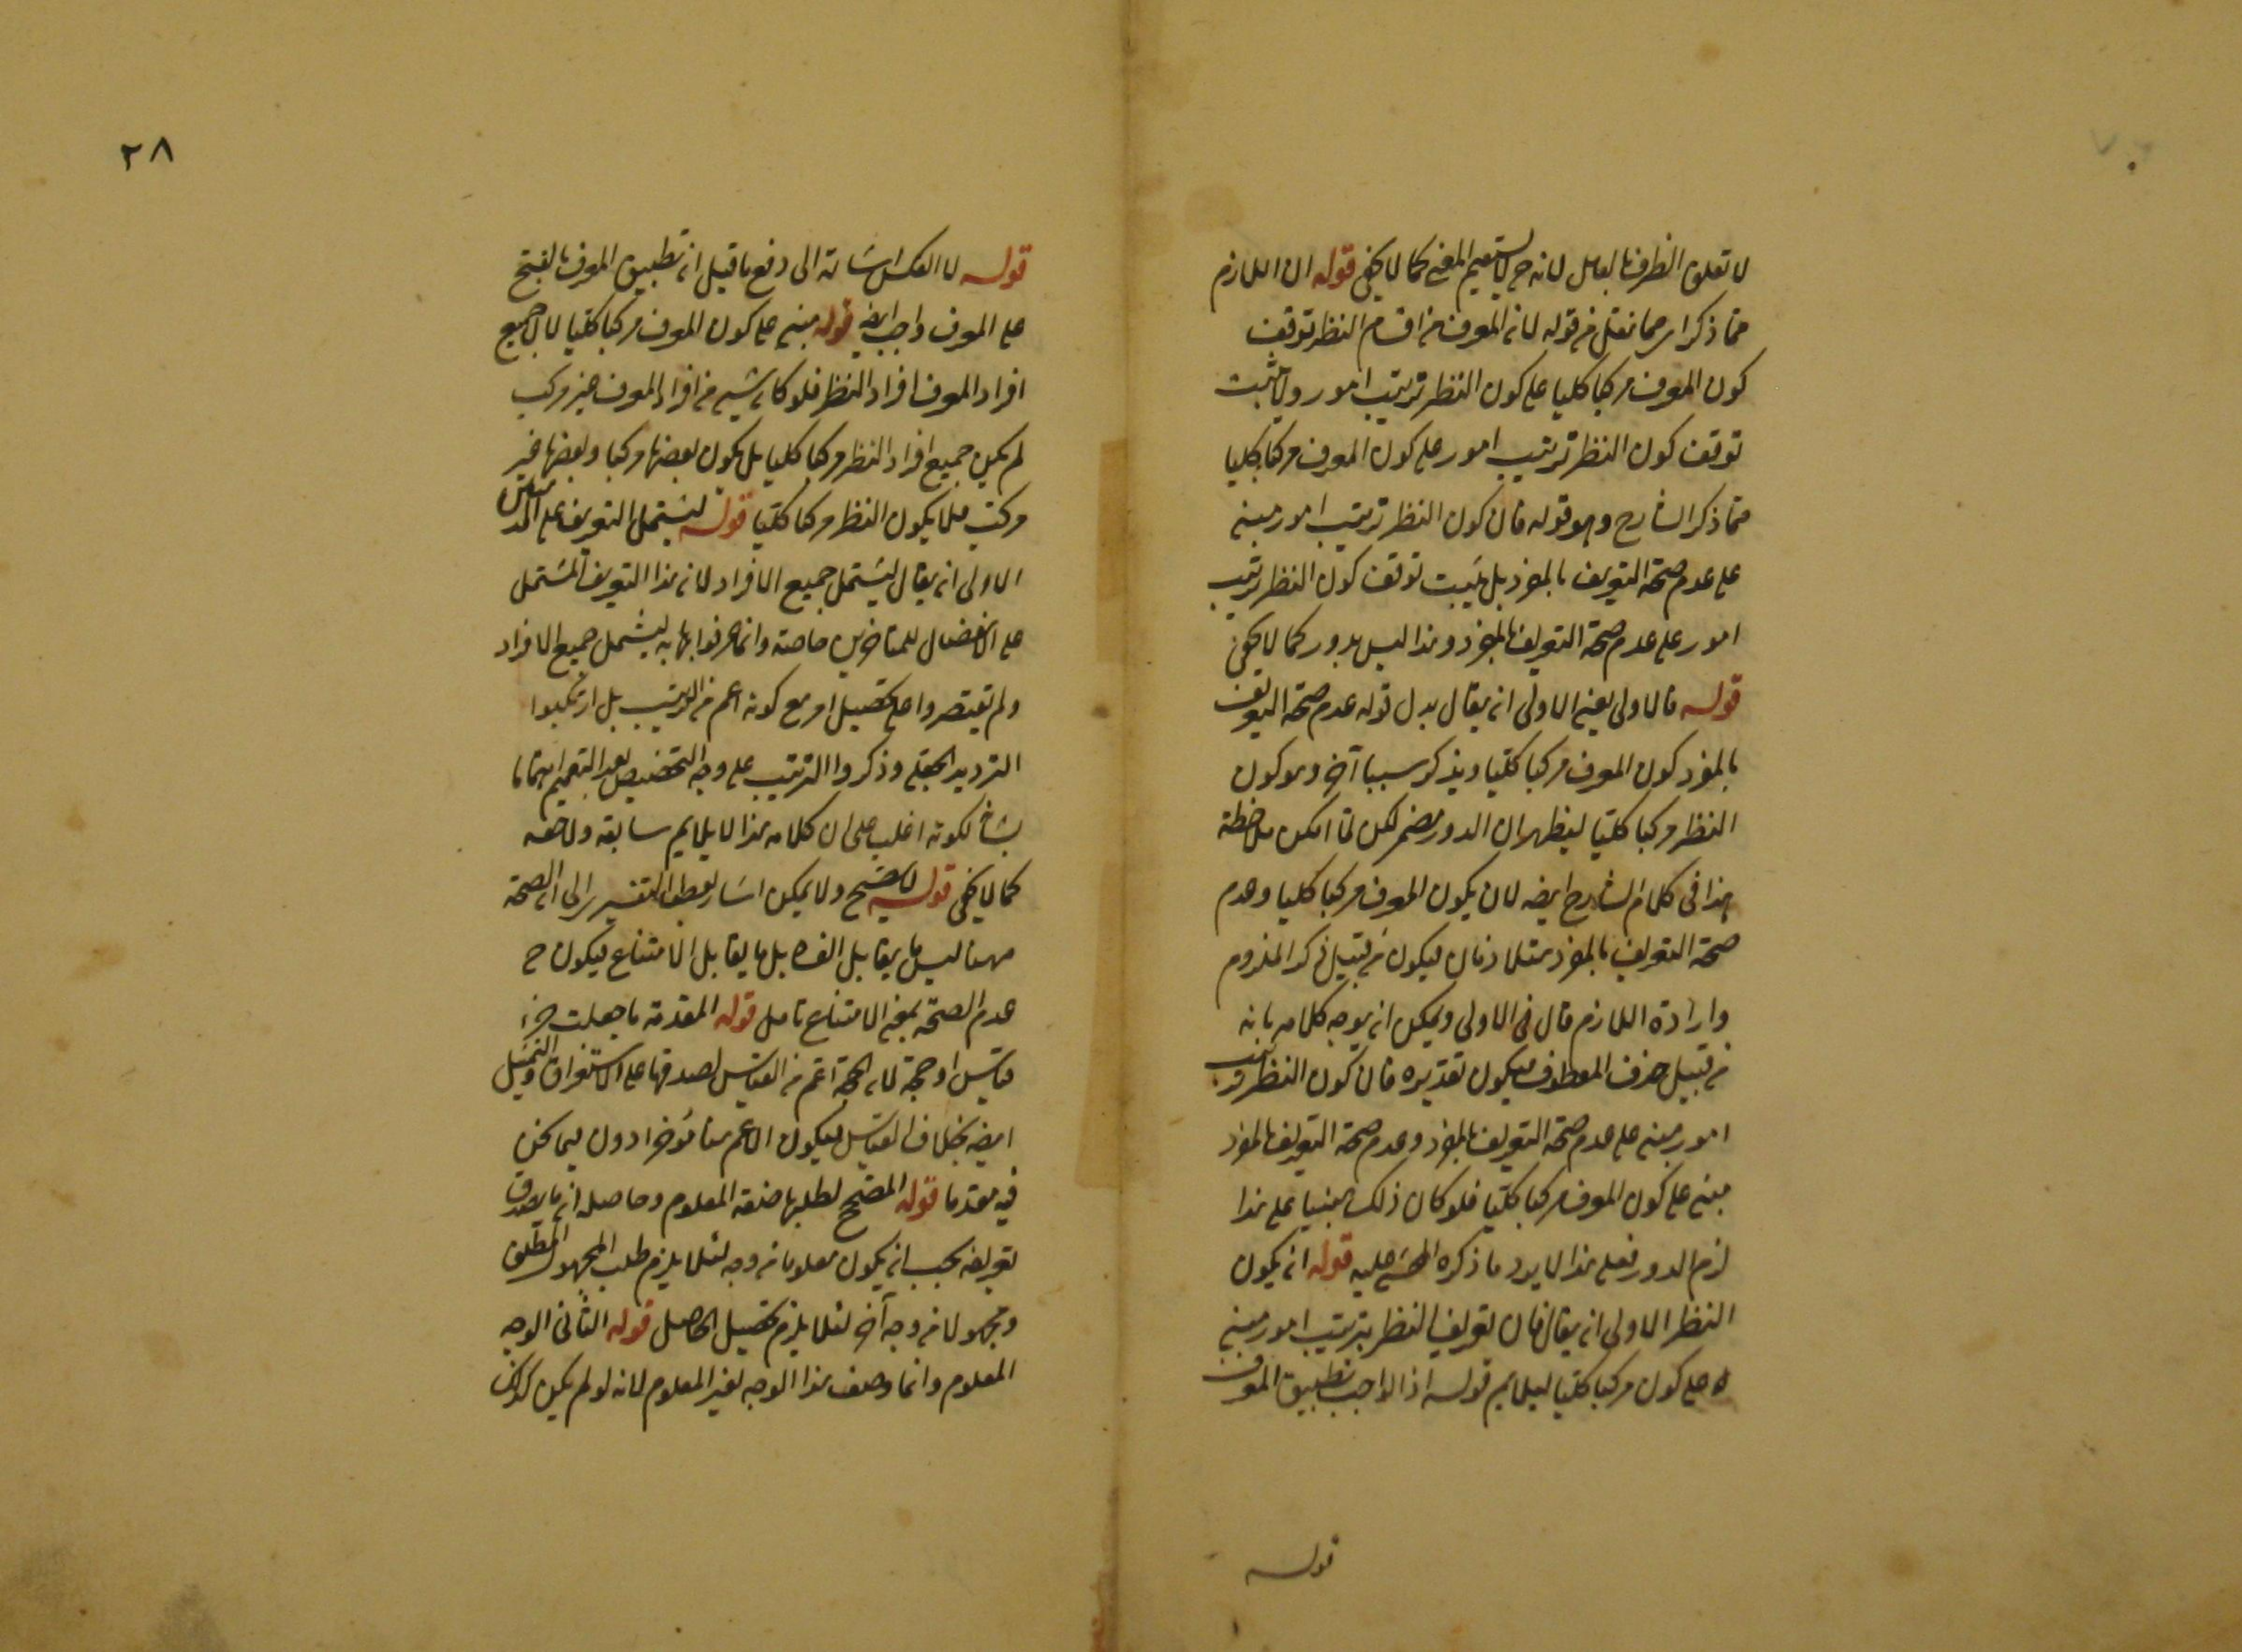 لا تعلق النظر فالعامل لانه ح لا يستقيم المعنى كما لا يخفى قوله ان اللازم
مما ذكر اى مما نقل من قوله لان المعرف من اقسام النظر توقف
كون المعرف مركبا كليا على كون النظر ترتيب امور ولا يثبت
توقف كون النظر ترتيب امور على كون المعرف مركبا كليا
مما ذكر الشارح وهو قوله فان كون النظر ترتيب امور مبنى
على عدم صحة التعريف بالمفرد بل يثبت توقف كون النظر ترتيب
امور على عدم صحة التعريف بالمفرد وهذا ليس بدور كما لا يخفى
قوله فالاولى يعنى الاولى ان يقال بدل قوله عدم صحة التعريف
بالمفرد كون المعرف مركبا كليا ويذكر سببا آخر وهو كون
النظر مركبا كليا ليظهر ان الدور مضمر لكن لما امكن ملاحظة
هذا فى كلام الشارح ايضا لان يكون المعرف مركبا كليا وعدم
صحة التعريف بالمفرد متلازمان فيكون من قبيل ذكر الملزوم
وارادة اللازم قال فى الاولى ويمكن ان يوجه كلامه بانه
من قبيل حذف المعطوف فيكون تقديره فان كون النظر ترتيب
امور مبنى على عدم صحة التعريف بالمفرد وعدم صحة التعريف بالمفرد
مبنى على كون المعرف مركبا كليا فلو كان ذلك مبنيا على هذا
لزم الدور فعلى هذا لا يرد ما ذكره المحشى عليه قوله ان يكون
النظر الاولى ان يقال فان تعريف النظر بترتيب امور مبنى
على كون مركبا كليا ليلايم قوله اذ الواجب تطبيق المعرف
قوله
٢٨
قوله لا العكس اشارة الى دفع ما قيل ان تطبيق المعرف بالفتح
على المعرف واجب ايضا قوله مبنى على كون المعرف مركبا كليا لان جميع
افراد المعرف افراد النظر فلو كان شيء من افراد المعرف غير مركب
لم يكن جميع افراد النظر مركبا كليا بل يكون بعضها مركبا وبعضها غير
مركب فلا يكون النظر مركبا كليا قوله ليشتمل التعريف على
الاولى ان يقال ليشتمل جميع الافراد لان هذا التعريف المشتمل
على الانفصال للمتاخرين خاصة وانما عرفوا بها به ليشمل جميع الافراد
ولم يقتصروا على تحصيل امر مع كونه اعم من الترتيب بل ارتكبوا
الترديد وذكروا الترتيب على وجه التخصيص بعد التعميم اهتماما
بشأنه لكونه اغلب على ان كلامه هذا لا يلايم سابقه ولاحقه
كما لا يخفى قوله لا يصح ولا يمكن اشار بعطف التفسير الى ان الصحة
ههنا ليس ما يقابل بل ما يقابل الامتناع فيكون ح
عدم الصحة بمعنى الامتناع تامل قوله المقدمة ما جعلت جزء
قياس او حجة لان الحجة اعم من القياس لصدقها على الاستقراء والتمثيل
ايضا بخلاف القياس فيكون الاعم هنا مؤخرا دون فيما نحن
فيه مقدما قوله المصحح لطلبها صفة المعلوم وحاصله ان ما يصدق
تعريفه يجب ان يكون معلوما من وجه لئلا يلزم طلب المجهول المطلق
ومجهولا من وجه آخر لئلا يلزم تحصيل الحاصل قوله الثانى الوجه
المعلوم وانما وصف هذا الوجه لغير المعلوم لانه لو لم يكن كذلك